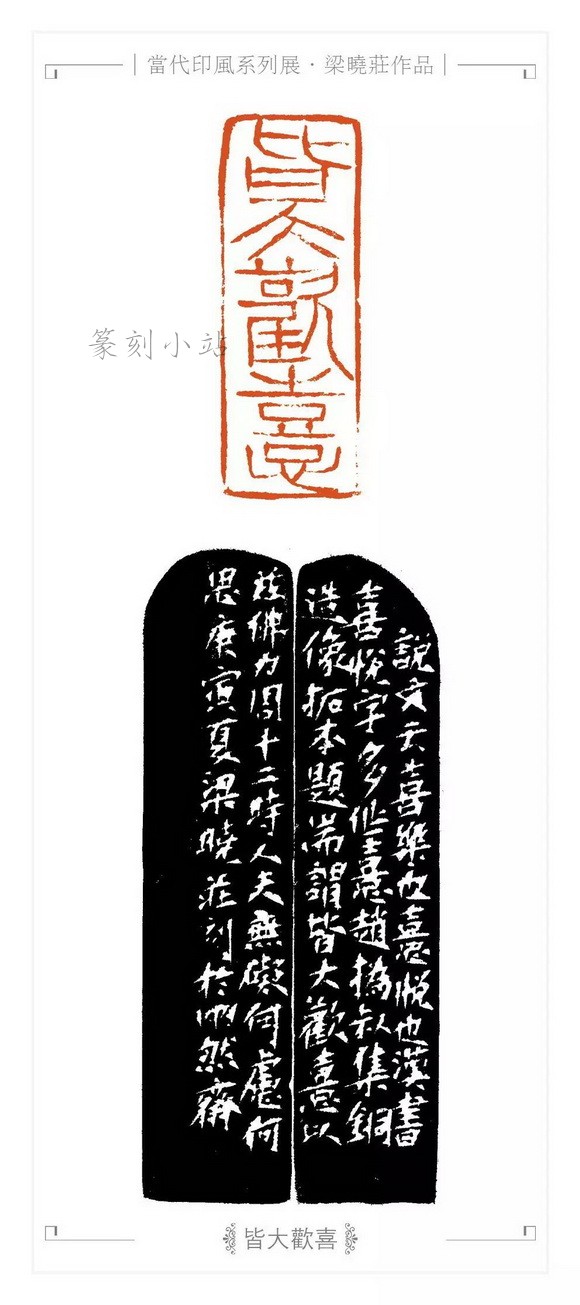 當代印風系列展·梁曉莊作品
皆大歡憙
篆刻小站
說文云喜樂也憙悅也漢書
喜悅字多作憙趙撝叔集銅
造像拓本題耑謂皆大歡憙以
茲佛力周十二時人天無礙何慮何
思庚寅夏梁曉莊刻於㒳然齋
皆大歡喜